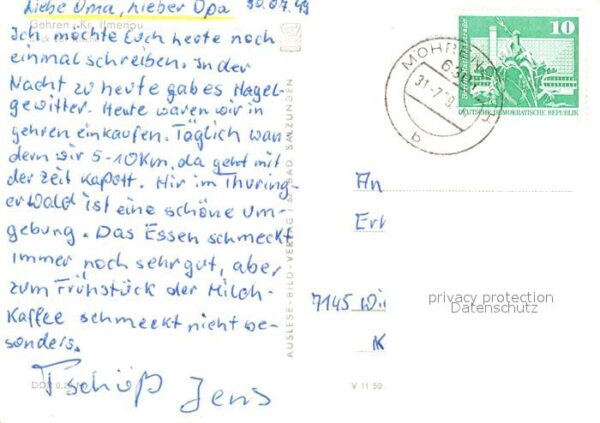 Liebe Oma, lieber Opa 30.07.
Gehren, Kr. Ilmenau
Ich möchte Euch heute noch
einmal schreiben. In der
Nacht zu heute gab es Hagel-
gewitter. Heute waren wir in
gehren einkaufen. Täglich wan
dern wir 5-10Km, da geht mit
der Zeit kapott. Hir im Thüring-
er Wald ist eine schöne Um-
gebung. Das Essen schmeckt
immer noch sehr gut, aber
zum Frühstück der Milch-
Kaffee schmeckt nicht be-
sonders.
Tschüß Jens
DDR
V 11 50
AUSLESE-BILD-VERLAG 62 BAD SALZUNGEN
10
DEUTSCHE DEMOKRATISCHE REPUBLIK
630
31.-7.
b
An
Er
7145 Wi
K
privacy protection
Datenschutz